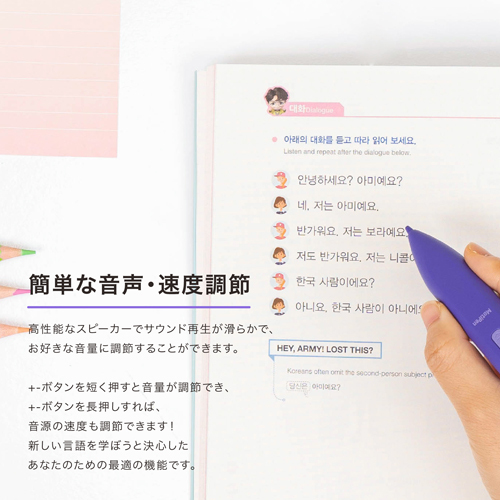 대화 Dialogue
아래의 대화를 듣고 따라 읽어 보세요.
Listen and repeat after the dialogue below.
안녕하세요? 아미예요?
네, 저는 아미예요.
반가워요. 저는 보라예요.
저도 반가워요. 저는 니콜
한국 사람이에요?
아니요, 한국 사람이 아니에
HEY, ARMY! LOST THIS?
Koreans often omit the second-person subject
당신은 아미예요?
簡単な音声・速度調節
高性能なスピーカーでサウンド再生が滑らかで、
お好きな音量に調節することができます。
+-ボタンを短く押すと音量が調節でき、
+-ボタンを長押しすれば、
音源の速度も調節できます！
新しい言語を学ぼうと決心した
あなたのための最適の機能です。